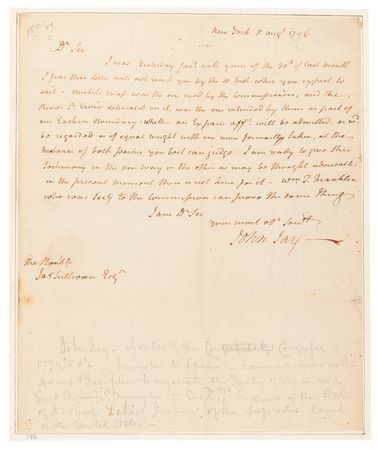 New York 5 augt. 1796
Dr Sir
I was Yesterday fav'd with yours of the 30th of last month
I fear this letter will not reach you by the 10 Inst. when you expect to
sail - Mitchels map was the one used by the Commissioners, and the
River St Croix delineated on it, was the one intended by them as part of
our Eastern Boundary - whether an Exparte afft. will be admitted, or wd.
be regarded as of equal weight with one more formally taken, at the
Instance of both parties you best can judge. I am ready to give this
Testimony in the one way or the other as may be thought adviseable
in the present moment there is not time for it - Wm T. Franklin
who was Secy to the Commission can prove the same thing
I am Dr Sir
your most obt Servt
John Jay
The Honble.
Jas Sullivan Esqr
John Jay - Member of the Continental Congress of
1774, 5 & 6 - Minister to Spain - Commissioner with
Adams & Franklin to negotiate the Treaty of Peace with
Great Britain - Minister to Engd. - Governor of the State
of New York & Chief Justice of the Supreme Court
of the United States -